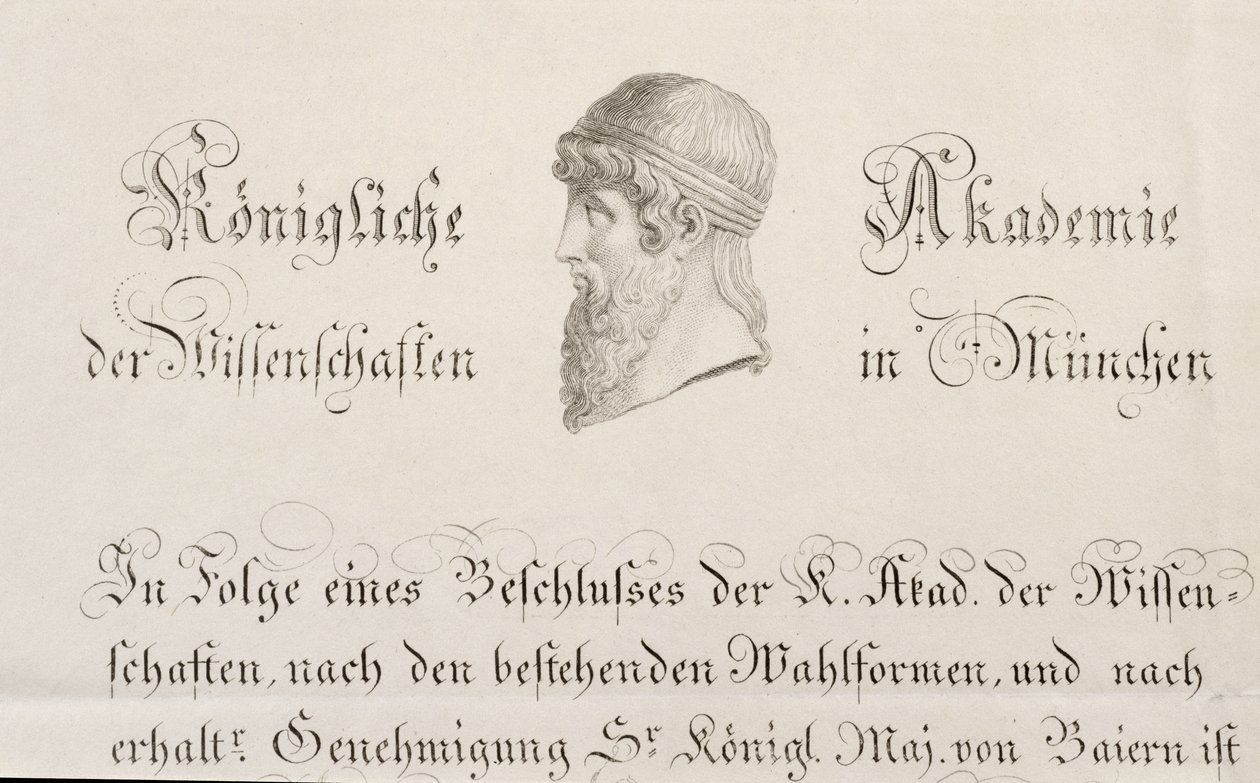 Königliche Akademie
der Wissenschaften in München
In Folge eines Beschlusses der K. Akad. der Wissen=
schaften, nach den bestehenden Wahlformen, und nach
erhaltr. Genehmigung Sr Königl. Maj. von Baiern ist